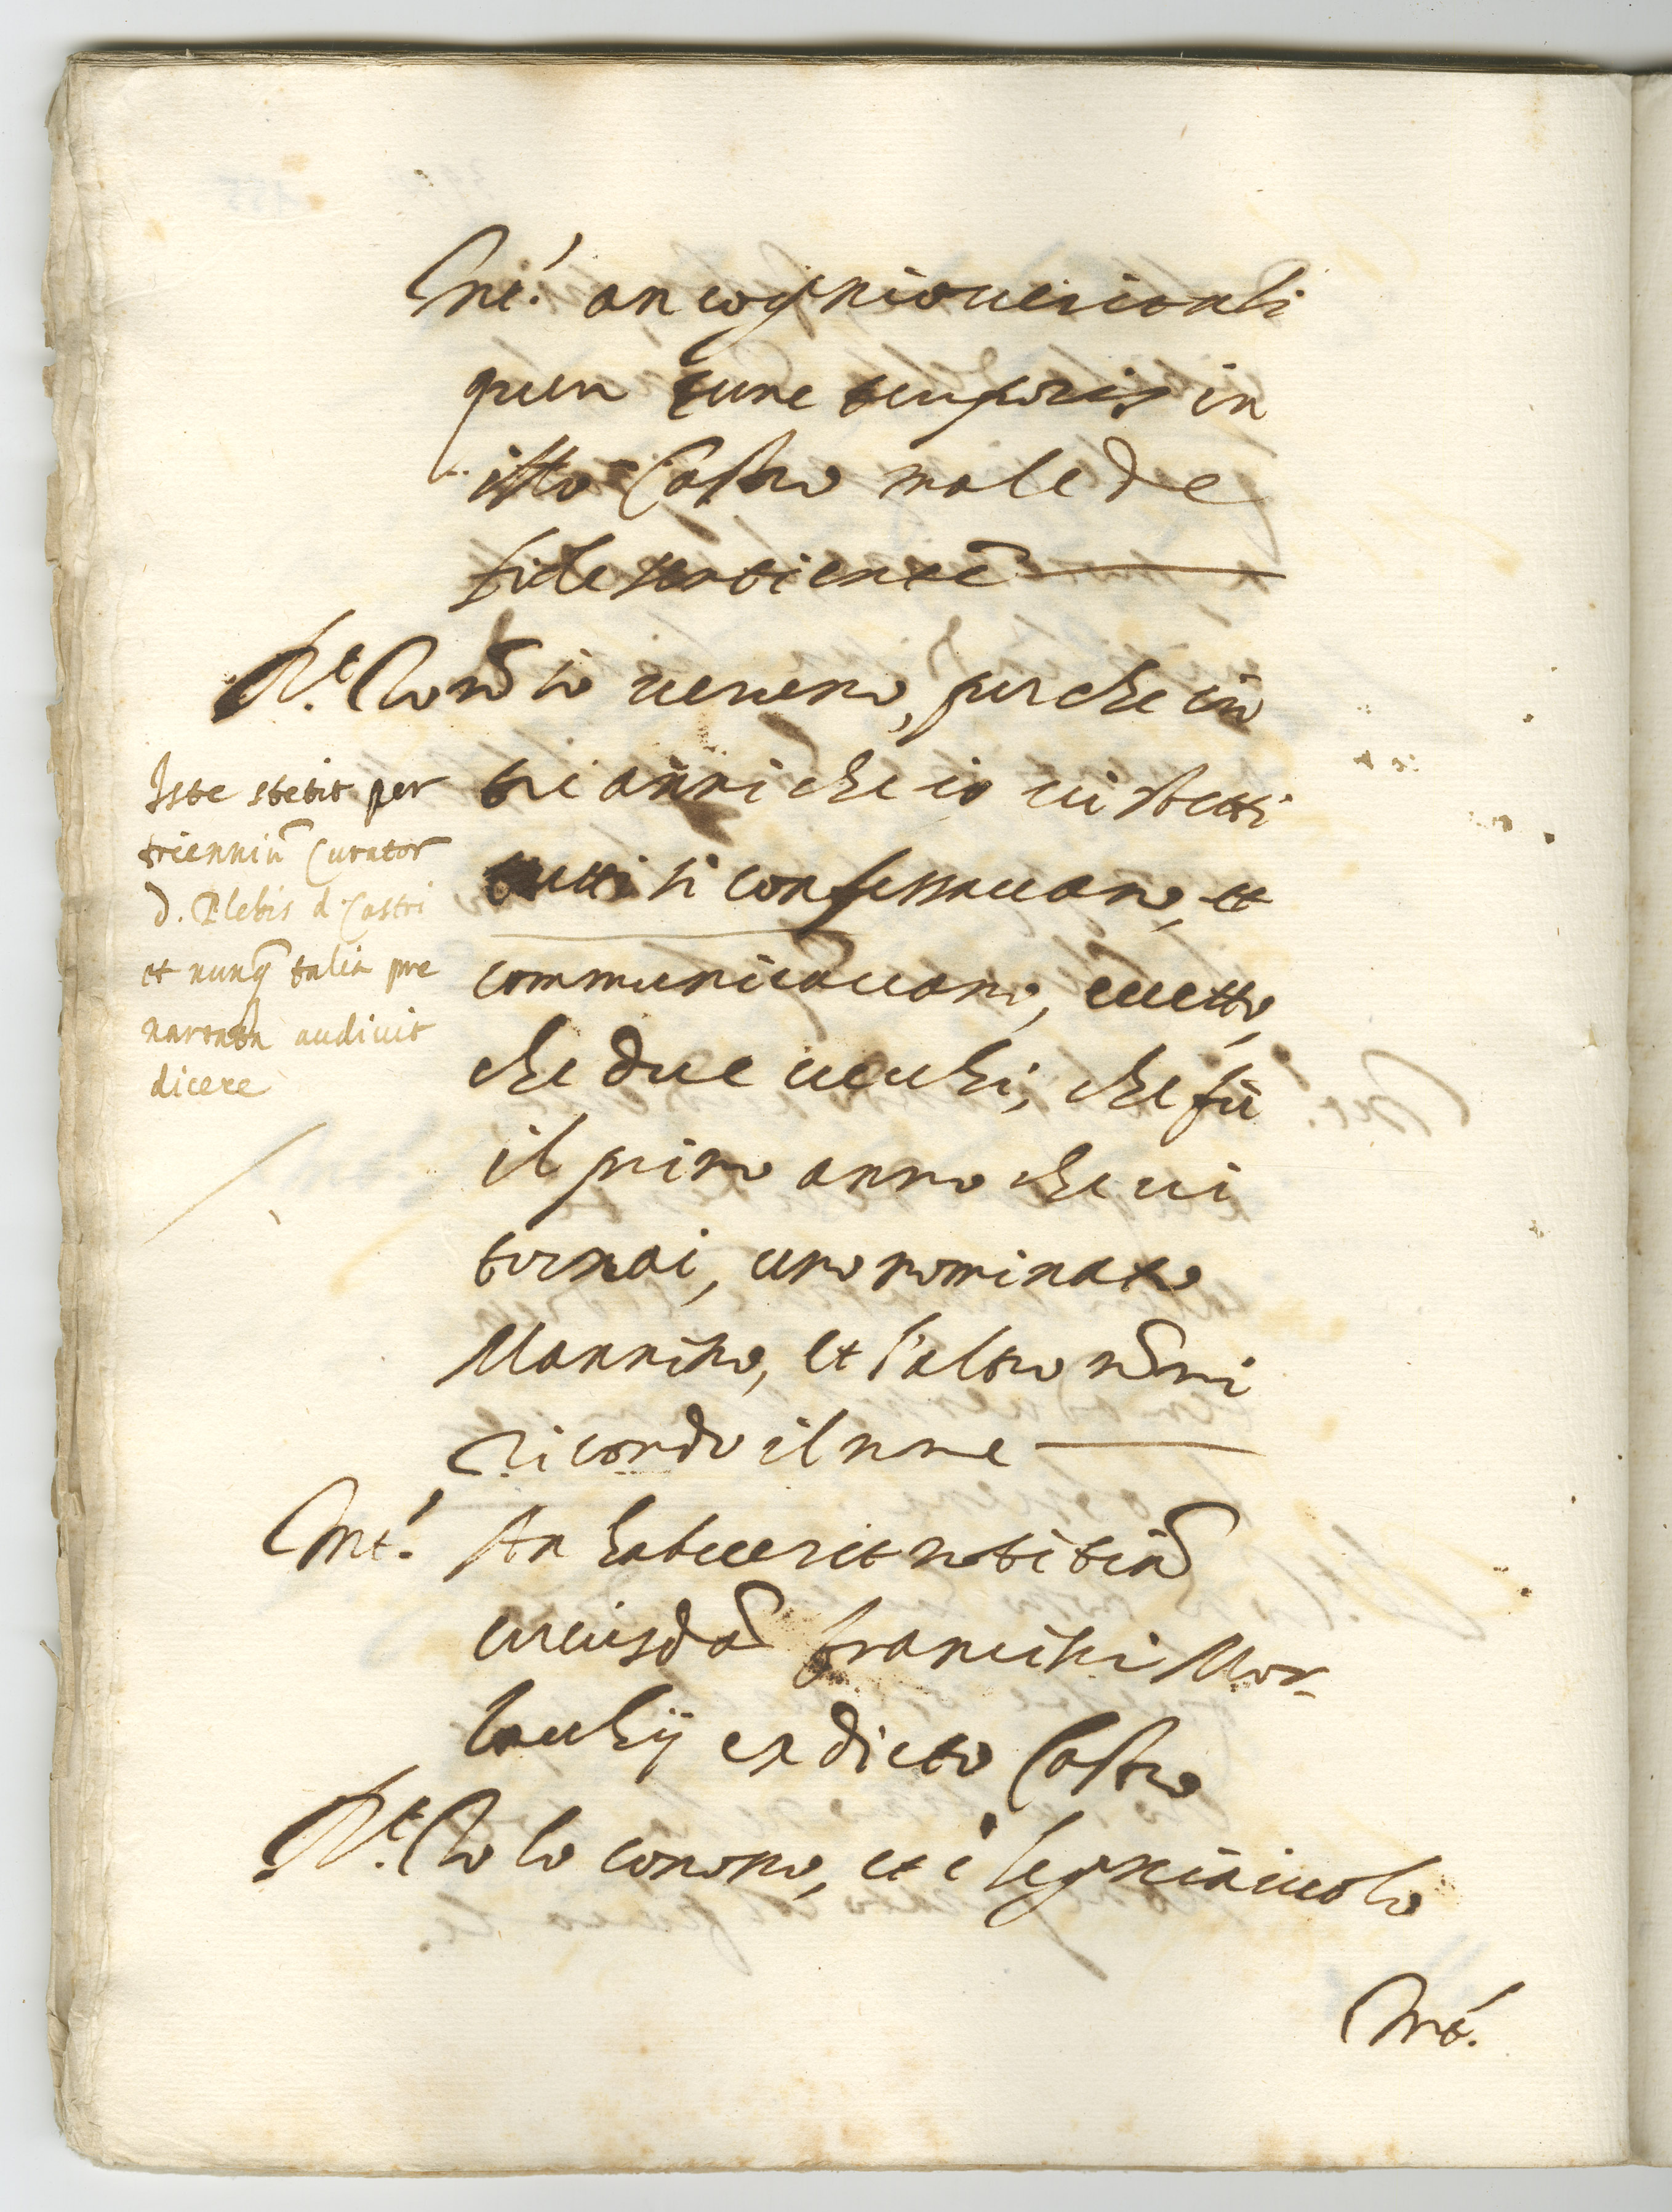 Int.' an cognioverit ali
quem tunc temporis in
isto Castro male de
fide sentientē
R.t Io nō lo veneno, perche in
tre anni che io vi stetti
tutti si confessavano, et
communicavano, eccetto,
che due vecchi, che fù
il primo anno che vi
tornai, uno nominato
Mannino, et l'altro nō mi
ricordo il nome
Iste stetit per
trienniū Curator
d. Plebis d. Castri
et nunq̄ talia pre
narrata audivit
dicere
Int.' An habuerit notitiā
cuiusdā Francisci Mor-
lacchij ex dicto Castro
R.t Io lo conosco, et è legniaiuolo
Int.'